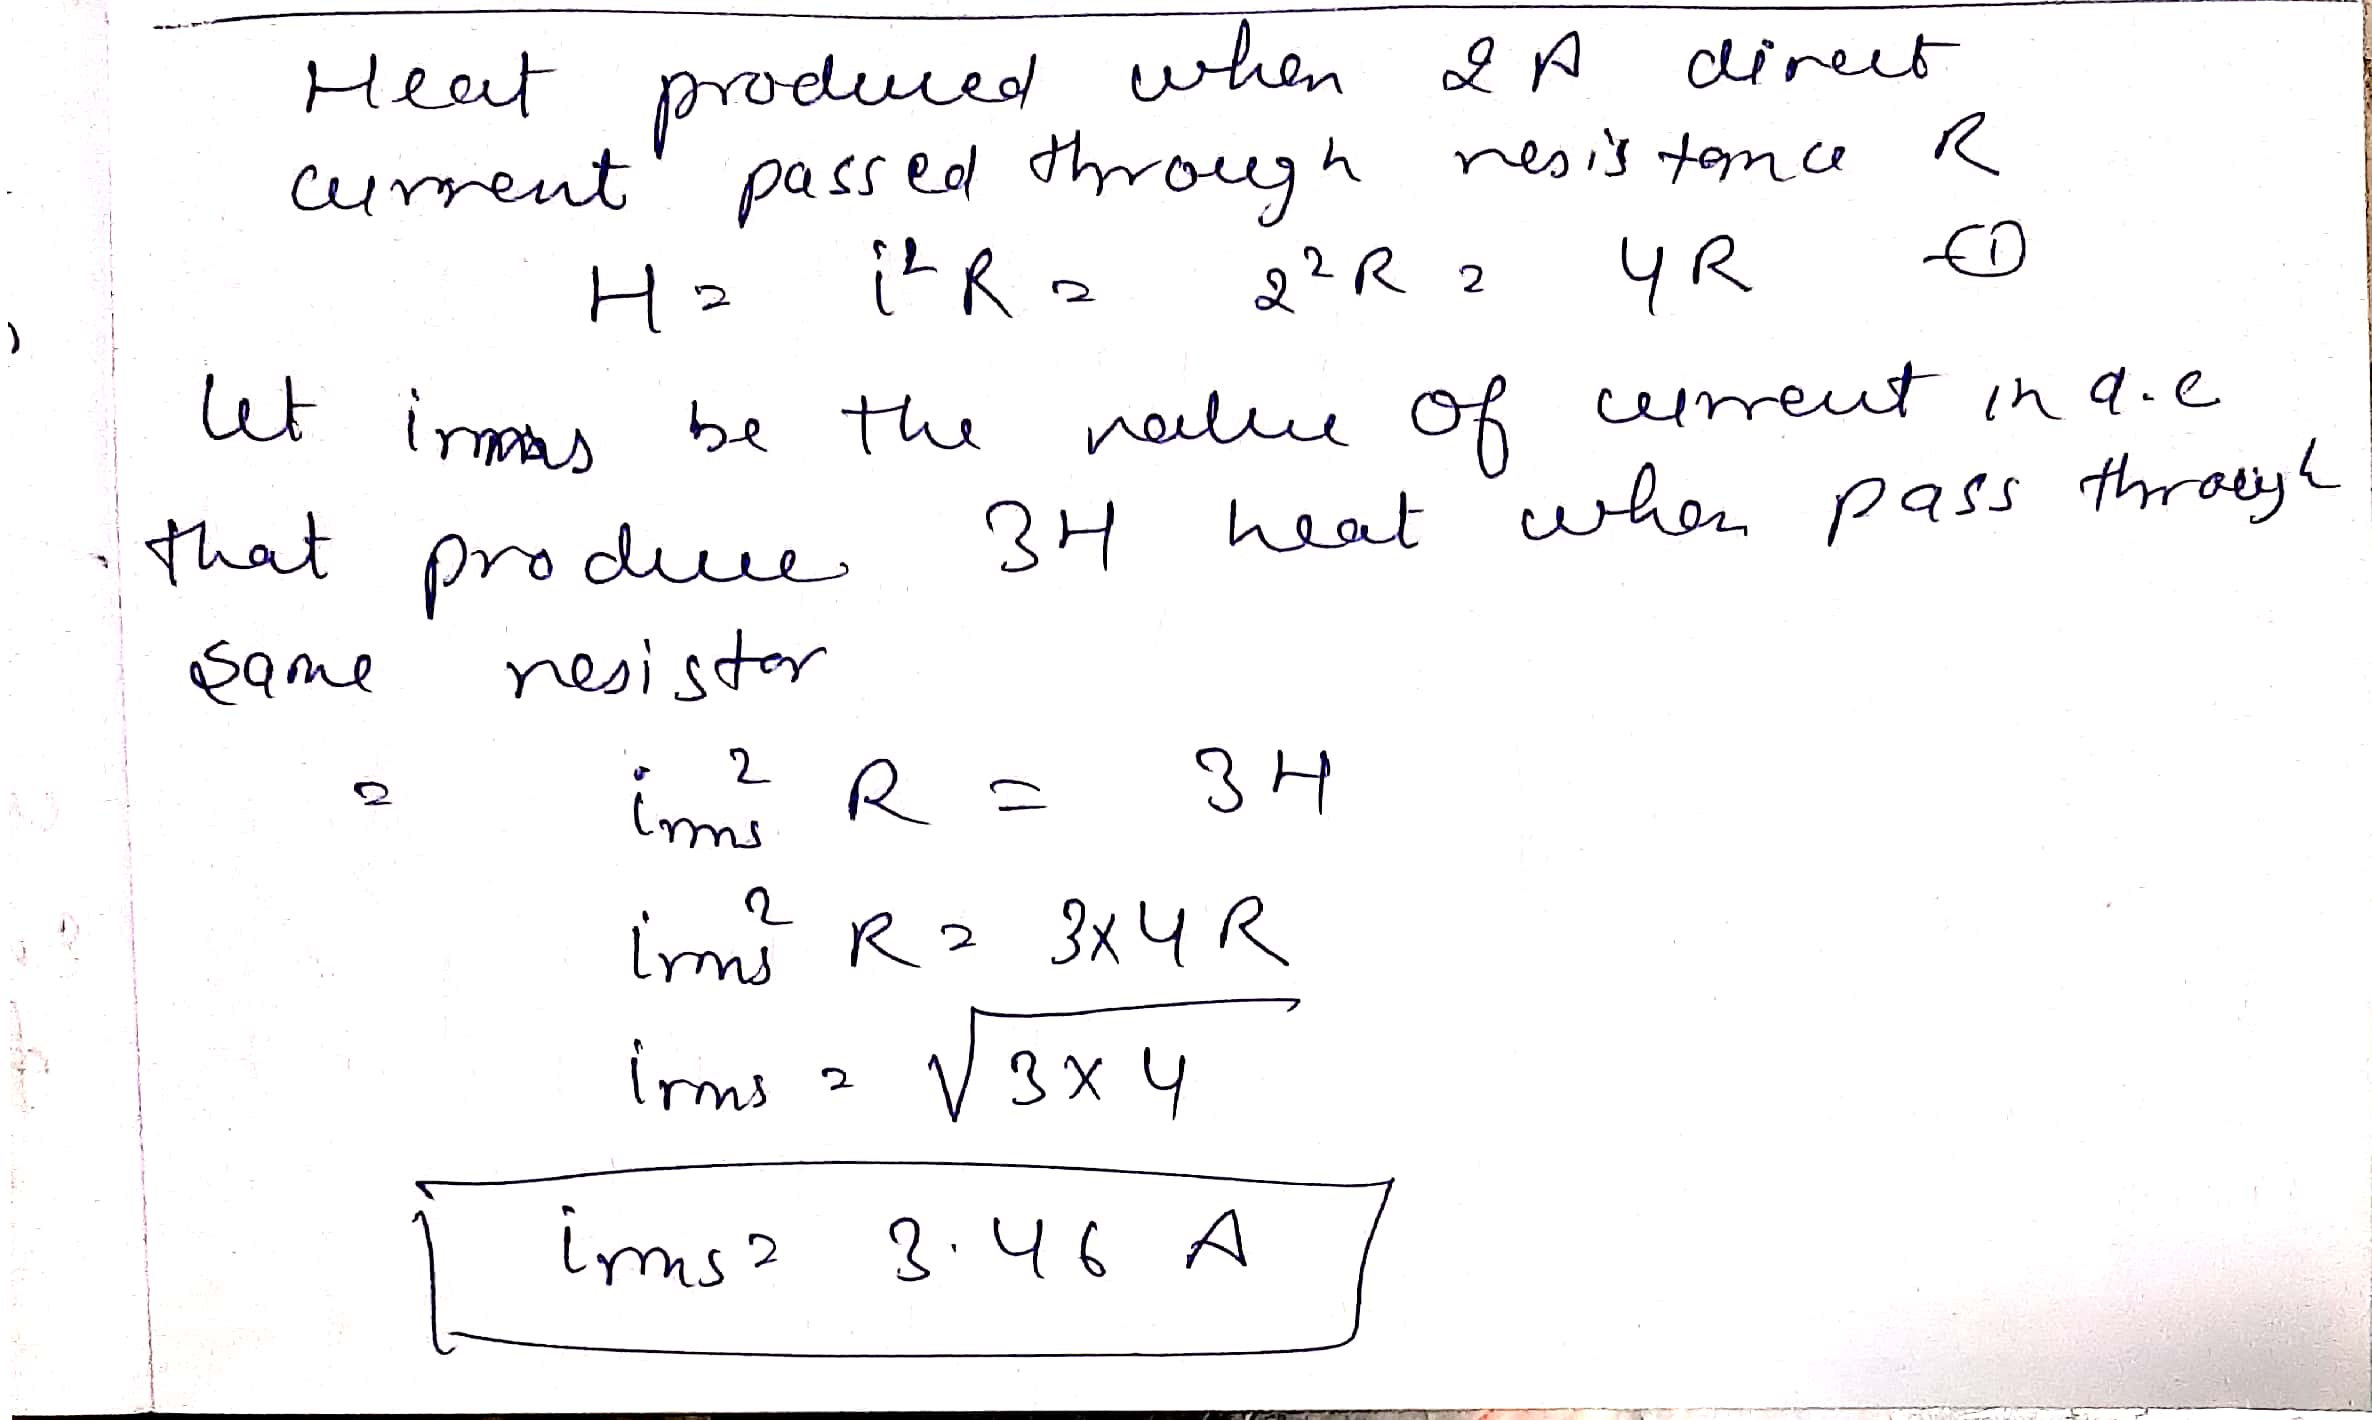 Heat produced when 2 A direct
current passed through resistance R
H = i² R = 2² R = 4R ①
let irms be the value of current in a.c
that produce 3H heat when pass through
same resistor
= irms² R = 3H
irms² R = 3x4R
irms = √3x4
irms = 3.46 A